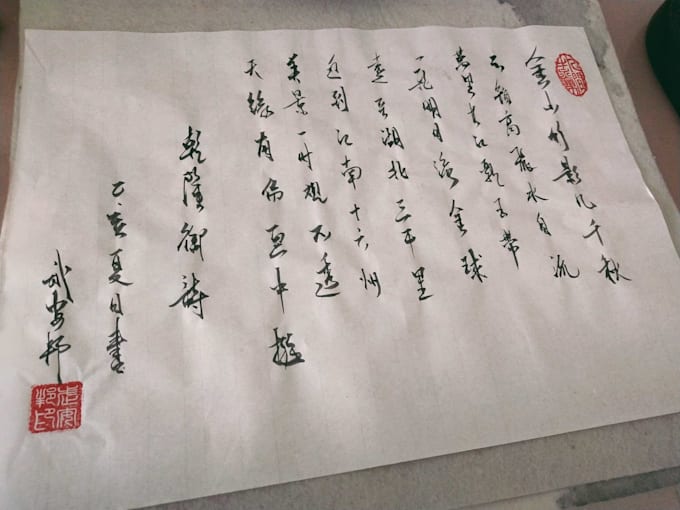 金山竹影几千秋
云锁高飞水自流
萬里长江飘玉带
一轮明月滚金球
远至湖北三千里
近到江南十六州
美景一时观不透
天缘有份画中游
乾隆御诗
己亥夏日書
武安邦
武安邦印